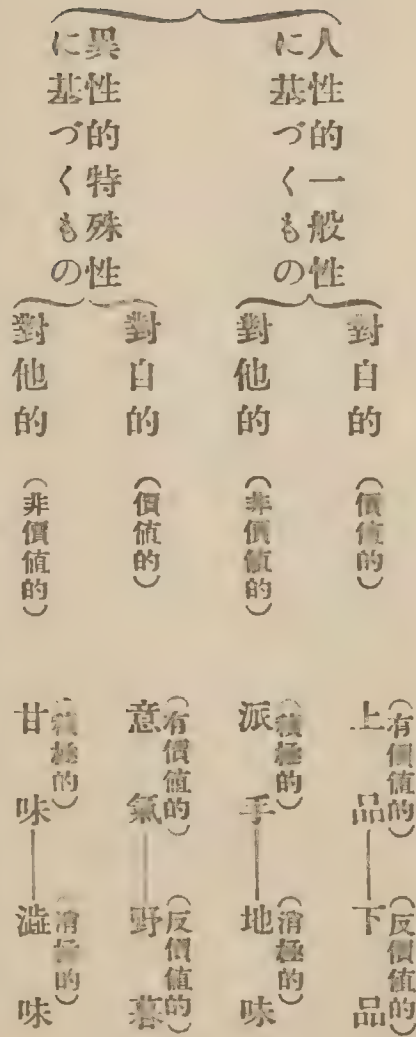 人性的一般性
に基づくもの
對自的（價値的）
上品——下品
（有價値的）（反價値的）
對他的（非價値的）
派手——地味
（積極的）（消極的）
異性的特殊性
に基づくもの
對自的（價値的）
意氣——野暮
（有價値的）（反價値的）
對他的（非價値的）
甘味——澁味
（積極的）（消極的）